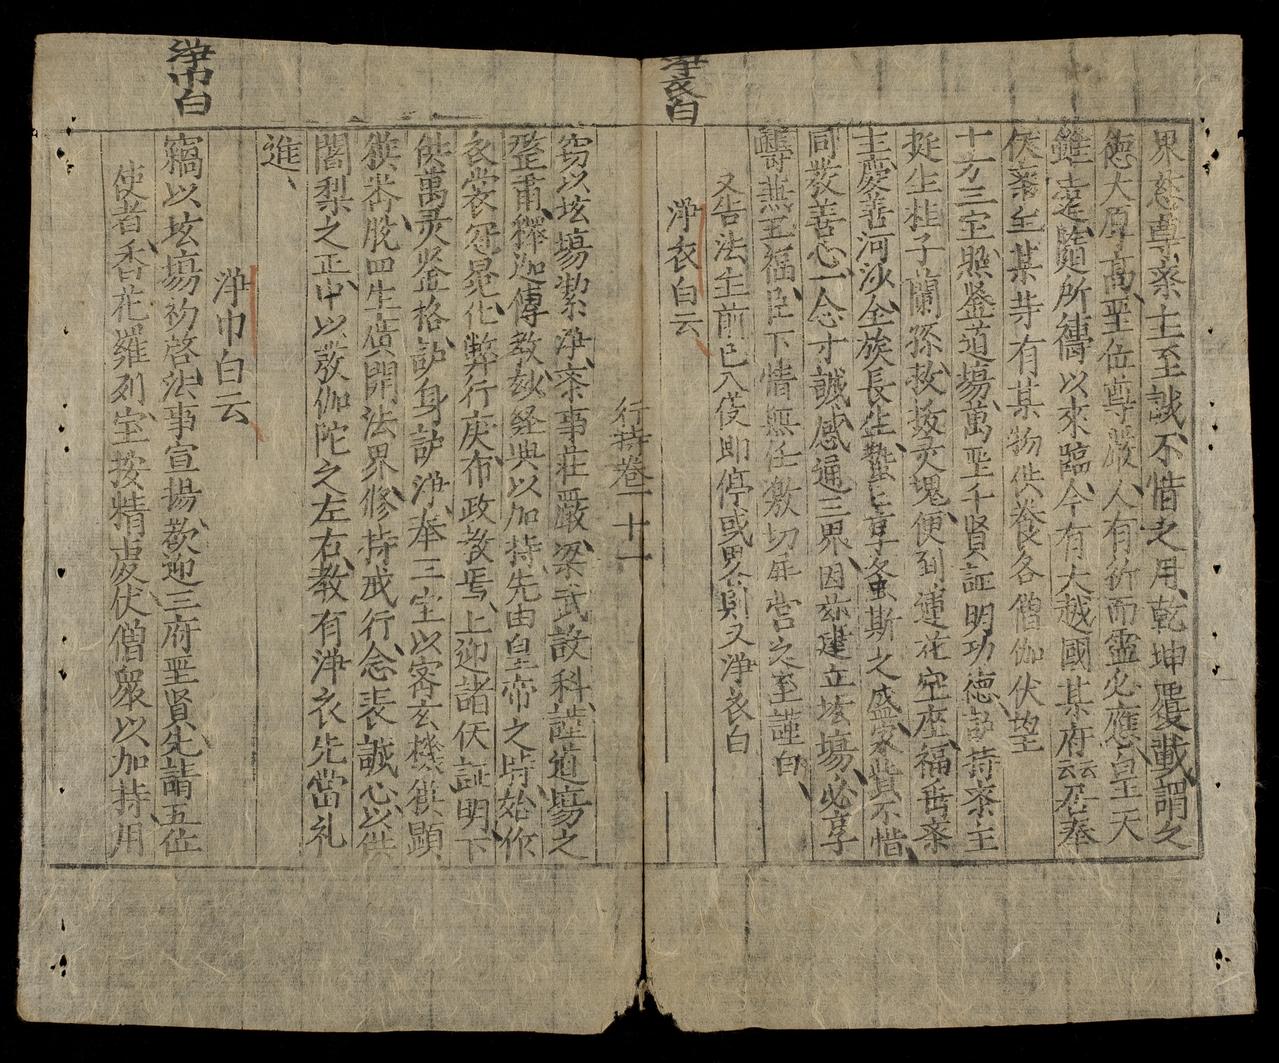 淨衣白
界慈尊齋主至誠不惜之用乾坤覆載謂之
德大原高聖位尊嚴人有祈而靈必應皇天
雖遠隨所禱以來臨今有大越國某府云云奉
伏齋主某寺有某物供養各僧伽伏望
十方三宝照鉴道塲萬聖千賢証明功德訪持齋主
挺生桂子蘭孫救拔灵魂便到蓮花宝座福岳齋
主慶善河沙全族長生蟄蟄享螽斯之盛齋貲不惜
同發善心一念才誠感通三界因玆建立坛塲必享
夀燕玉福臣下情無任激切屏营之至謹白
又告法主前已入従即停或異佘則又淨衣白
淨衣白云
行持卷一十一
窃以坛塲紮淨齋事莊嚴梁武設科謹道塲之
登壇釋迦傳教敍経典以加持先由皇帝之時始作
衣裳冠冕化弊行庆布政教焉上迎諸仸証明下
供萬灵鉴格訪身訪淨奉三宝以客玄機獲顯
獲苦脫四生廣開法界修持戒行念表誠心以供
闍梨之正中以教伽陀之左右教有淨衣先當礼
進
淨巾白
淨巾白云
竊以坛塲初啓法事宣揚歡迎三府聖賢先請五位
使者香花羅列宝按精虔伏僧衆以加持用